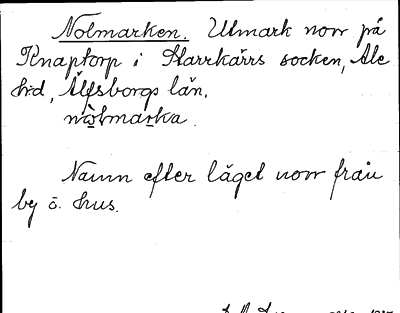 Nolmarken. Utmark norr på
Knaptorp i Starrkärrs socken, Ale
hrd, Älfsborgs län.
nòlmarka.
Namn efter läget norr från
by o. hus.